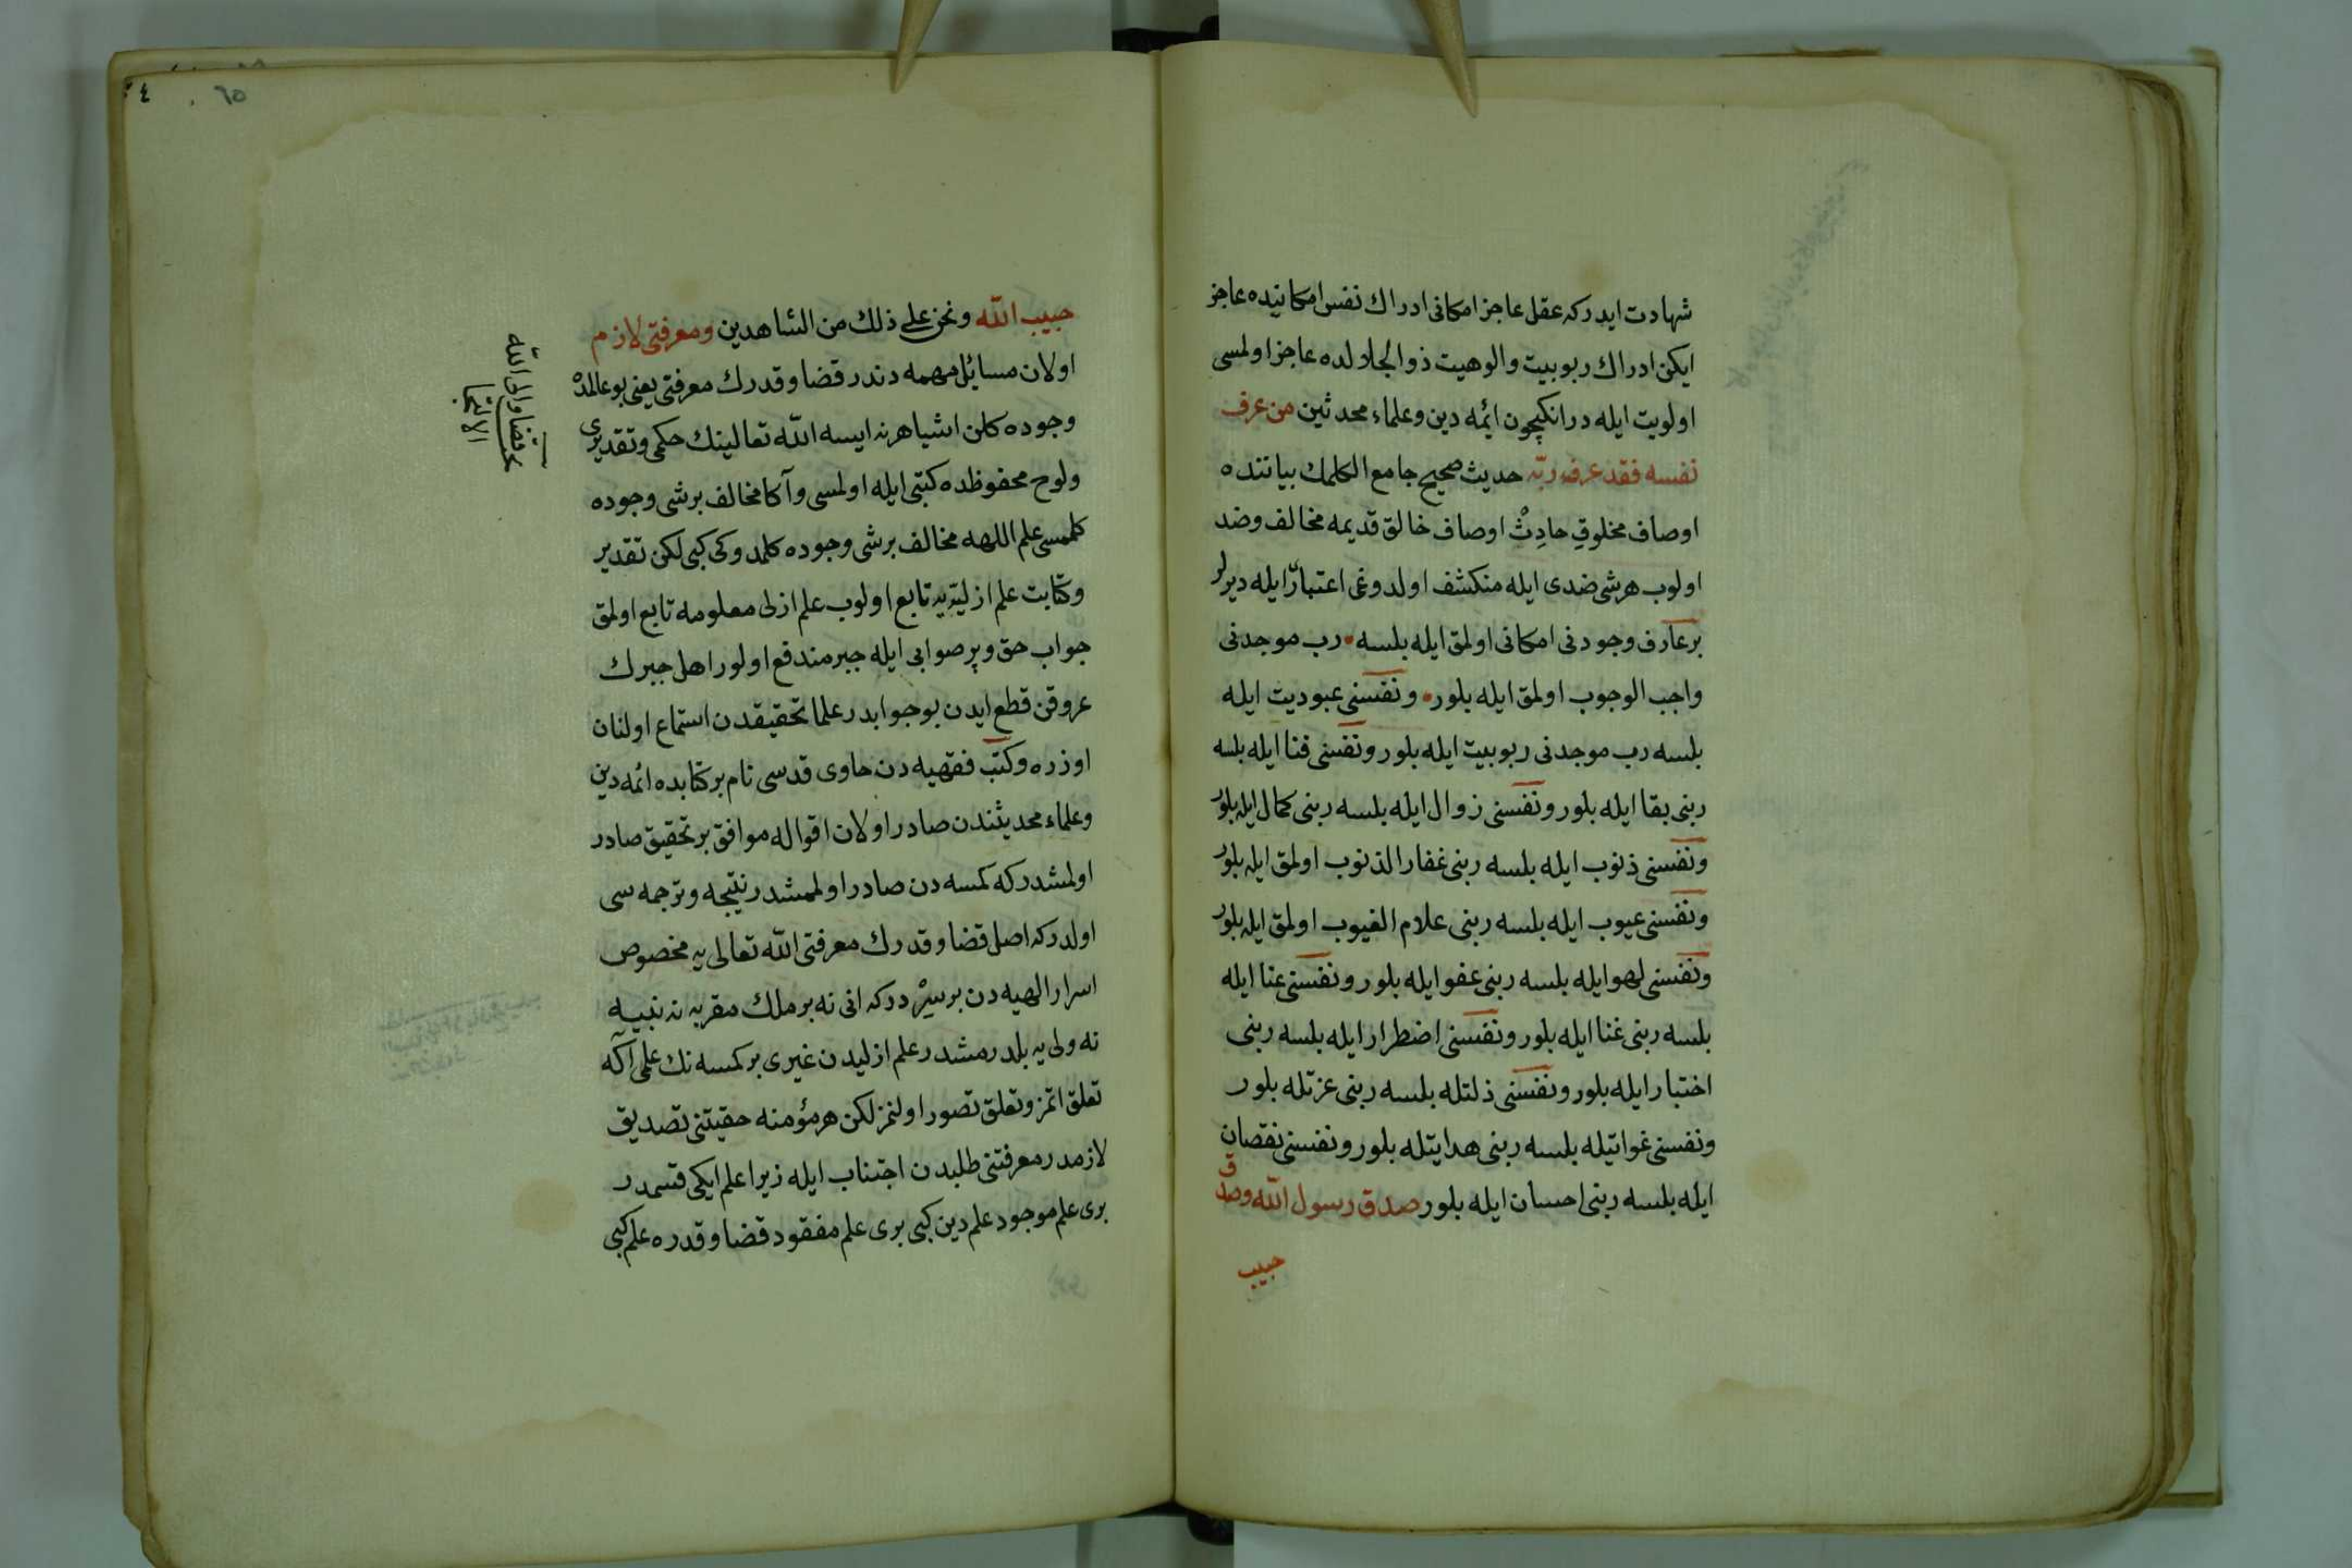 شهادت ایدرکه عقل عاجز امکانی ادراك نفس امکانیده عاجز
ایکن ادراك ربوبیت والوهیت ذو الجلالده عاجز اولمسی
اولویت ایله در انکیچون ائمه دین وعلماء محدثین من عرف
نفسه فقد عرف ربّه حدیث صحیح جامع الکلمك بیاننده
اوصاف مخلوق حادِثْ اوصاف خالق قدیمه مخالف وضد
اولوب هرشی ضدی ایله منکشف اولدوغی اعتبارّ ایله دیرلر
برعارف وجودنی امکانی اولمق ایله بلسه رب موجدنی
واجب الوجوب اولمق ایله بلور ونفسنی عبودیت ایله
بلسه رب موجدنی ربوبیت ایله بلور ونفسنی فنا ایله بلسه
ربنی بقا ایله بلور ونفسنی زوال ایله بلسه ربنی کمال ایله بلور
ونفسنی ذنوب ایله بلسه ربنی غفار الذنوب اولمق ایله بلور
ونفسنی عیوب ایله بلسه ربنی علام الغیوب اولمق ایله بلور
ونفسنی لهو ایله بلسه ربنی عفو ایله بلور ونفسنی عنا ایله
بلسه ربنی غنا ایله بلور ونفسنی اضطرار ایله بلسه ربنی
اختیار ایله بلور ونفسنی ذلتله بلسه ربنی عزتله بلور
ونفسنی غوایتله بلسه ربنی هدایتله بلور ونفسنی نقصان
ایله بلسه ربنی احسان ایله بلور صدق رسول الله وصدق
حبیب
٦٥
حبیب الله ونحن علی ذلك من الشاهدین ومعرفتی لازم
اولان مسائل مهمه دندر قضا وقدرك معرفتی یعنی بو عالمدْ
وجوده کلن اشیا هرنه ایسه الله تعالینك حکمی وتقدیری
ولوح محفوظده کتبی ایله اولمسی وآکا مخالف برشی وجوده
کلمسی علم اللهه مخالف برشی وجوده کلمدوکی کبی لکن تقدیر
وکتابت علم ازلیّه یه تابع اولوب علم ازلی معلومه تابع اولمق
جواب حق وپرصوابی ایله جبر مندفع اولور اهل جبرك
عروقن قطع ایدن بو جوابدر علما تحقیقدن استماع اولنان
اوزره وکتب فقهیه دن حاوی قدسی نام برکتابده ائمه دین
وعلماء محدیثندن صادر اولان اقواله موافق برتحقیق صادر
اولمشدرکه کمسه دن صادر اولممشدر نتیجه وترجمه سی
اولدرکه اصل قضا وقدرك معرفتی الله تعالی یه مخصوص
اسرار الهیه دن برسِرْ درکه انی نه برملك مقربه نه نبییه
نه ولی یه بلدرمشدر علم ازلیدن غیری برکمسه نك علمی آکه
تعلق اتمز وتعلق تصور اولنمز لکن هرمؤمنه حقیتنی تصدیق
لازمدر معرفتنی طلبدن اجتناب ایله زیرا علم ایکی قسمدر
بری علم موجود علم دین کبی بری علم مفقود قضا وقدره علم کبی